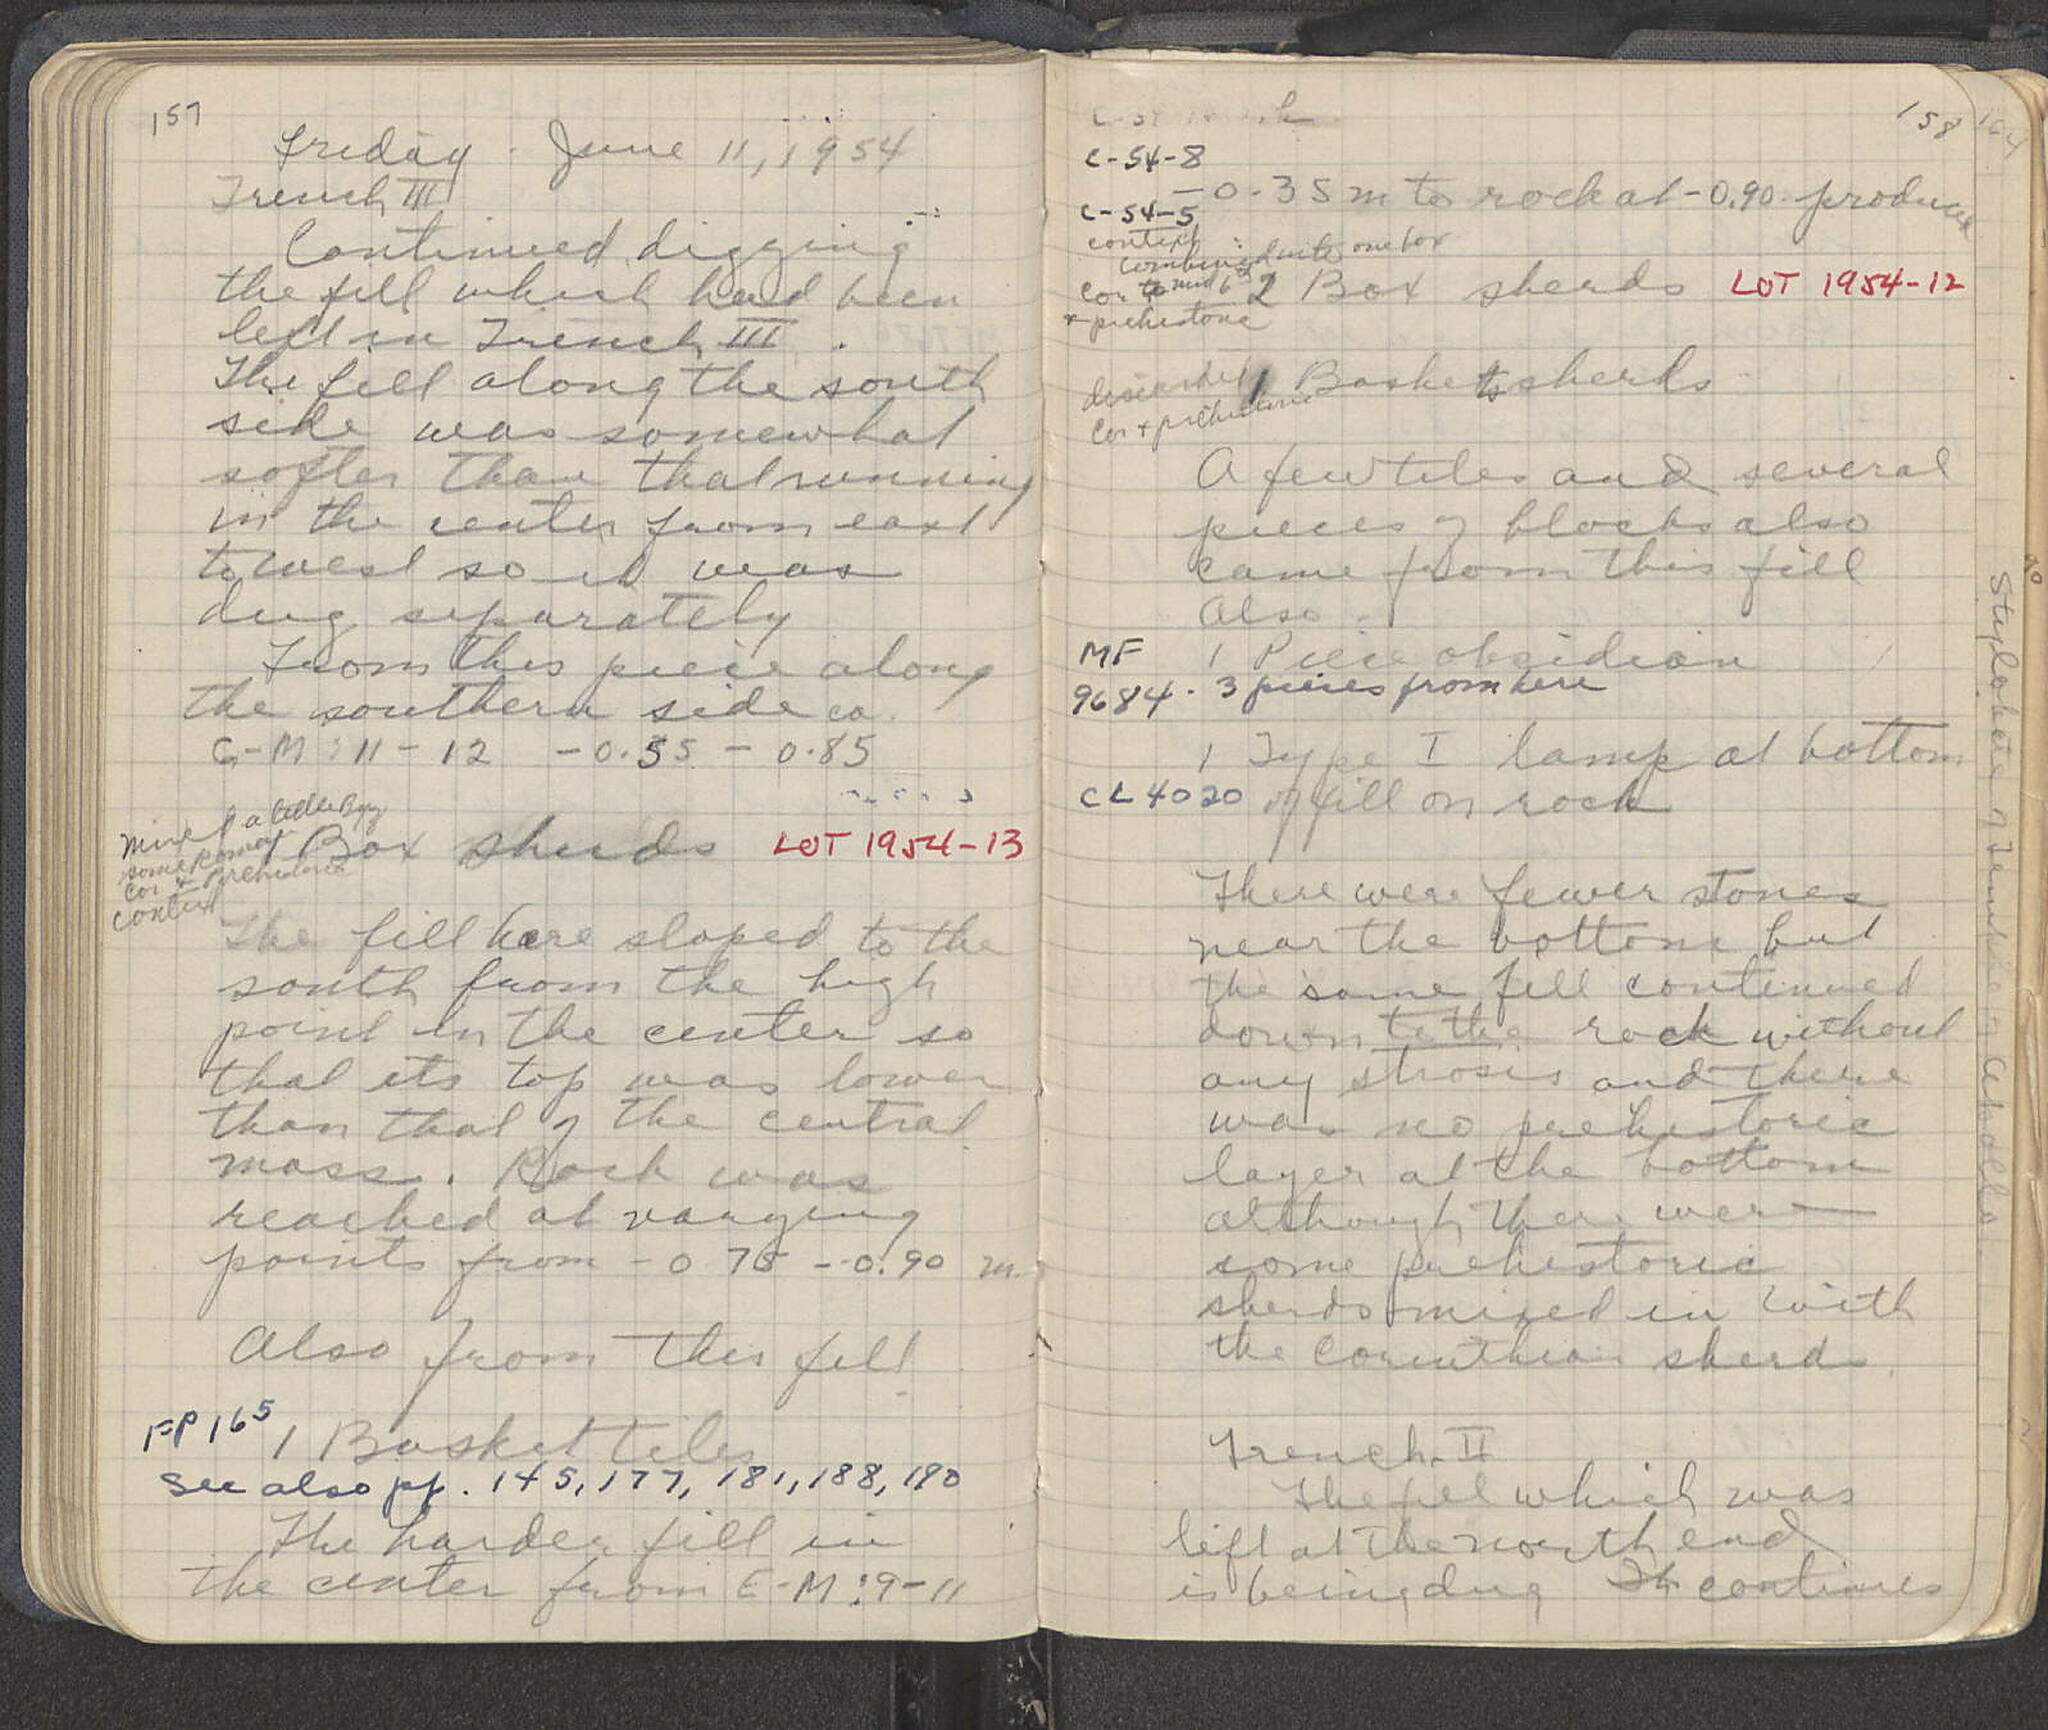 157
Friday - June 11, 1954
Trench III
Continued digging
the fill which had been
left in Trench III.
The fill along the south
side was somewhat
softer than that running
in the center from east
to west so it was
dug separately
From this piece along
the southern side ca.
G-M:11-12 -0.55 - 0.85
Mixed a little Byz
some Roman
Cor + Prehistoric
context
1 Box sherds LOT 1954-13
The fill here sloped to the
south from the high
point in the center so
that its top was lower
than that of the central
mass. Rock was
reached at varying
points from -0.75 - -0.90 m.
Also from this fill
FP 165 1 Basket tiles
See also pp. 145, 177, 181, 188, 190
The harder fill in
the center from E-M:9-11
158
C-54-8
-0.35 m to rock at -0.90 produced
C-54-5
context:
combined into one box
Cor to mid 6th
+ prehistoric
2 Box sherds LOT 1954-12
discarded
Cor + prehistoric
1 Baskets sherds
A few tiles and several
pieces of blocks also
came from this fill
Also.
MF 1 Piece obsidian
9684 - 3 pieces from here
1 Type I lamp at bottom
CL 4020 of fill on rock
There were fewer stones
near the bottom but
the same fill continued
down to the rock without
any strosis and there
was no prehistoric
layer at the bottom
although there were
some prehistoric
sherds mixed in with
the Corinthian sherds.
Trench II
The fill which was
left at the north end
is being dug It continues
164
Stylobate of Temple of Apollo